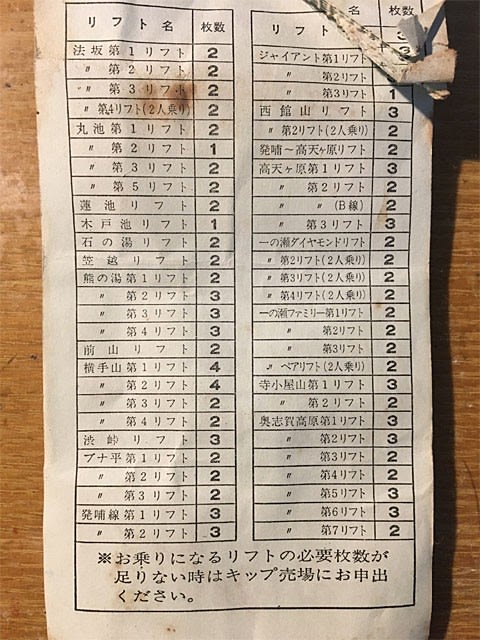 リフト名 枚数
法坂第1リフト 2
〃 第2リフト 2
〃 第3リフト 2
〃 第4リフト(2人乗り) 2
丸池第1リフト 2
〃 第2リフト 1
〃 第3リフト 2
〃 第5リフト 2
蓮池リフト 2
木戸池リフト 1
石の湯リフト 2
笠越リフト 2
熊の湯第1リフト 2
〃 第2リフト 3
〃 第3リフト 3
〃 第4リフト 3
前山リフト 2
横手山第1リフト 4
〃 第2リフト 4
〃 第3リフト 2
〃 第4リフト 2
渋峠リフト 3
ブナ平第1リフト 2
〃 第2リフト 2
〃 第3リフト 2
発哺線第1リフト 3
〃 第2リフト 3
リフト名 枚数
ジャイアント第1リフト
〃 第2リフト
〃 第3リフト 1
西館山リフト 3
〃 第2リフト(2人乗り) 2
発哺〜高天ヶ原リフト 2
高天ヶ原第1リフト 3
〃 第2リフト 2
〃 〃 (B線) 2
〃 第3リフト 3
一の瀬ダイヤモンドリフト 2
〃 第2リフト(2人乗り) 2
〃 第3リフト(2人乗り) 2
〃 第4リフト(2人乗り) 2
一の瀬ファミリー第1リフト 2
〃 第2リフト 2
〃 第3リフト 2
〃 ペアリフト(2人乗り) 2
寺小屋山第1リフト 3
〃 第2リフト 2
奥志賀高原第1リフト 3
〃 第2リフト 3
〃 第3リフト 2
〃 第4リフト 2
〃 第5リフト 3
〃 第6リフト 3
〃 第7リフト 2
※お乗りになるリフトの必要枚数が
足りない時はキップ売場にお申出
ください。